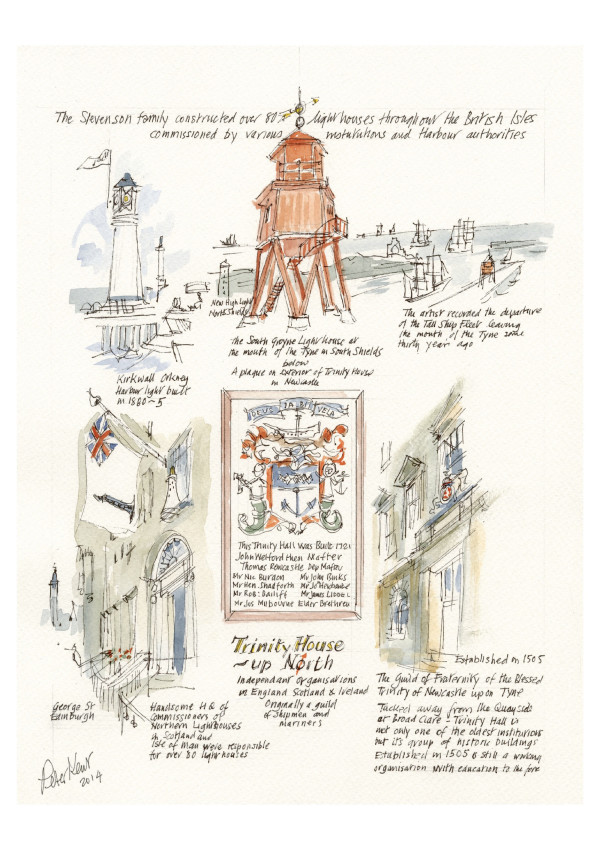 The Stevenson family constructed over 80% lighthouses throughout the British Isles
commissioned by various institutions and Harbour authorities
New High Light
North Shields
The artist recorded the departure
of the Tall Ship Fleet leaving
the mouth of the Tyne some
thirty year ago
The South Groyne Light house at
the mouth of the Tyne in South Shields
below
A plaque on exterior of Trinity House
in Newcastle
Kirkwall Orkney
Harbour light built
in 1880~5
DEUS DABIT VELA
This Trinity Hall was Built 1721
John Welford then Master
Thomas Dep Master
Mr Nic Burdon
Mr John Binks
Mr Hen. Shadforth
Mr Rob: Bailiff
Mr James
Mr Jos Melbourne Elder Brethren
Trinity House
~ up North
Independant organisations
in England Scotland & Ireland
Originally a guild
of Shipmen and
mariners
Established in 1505
The Guild of Fraternity of the Blessed
Trinity of Newcastle upon Tyne
Tucked away from the Quayside
at Broad Trinity Hall is
not only one of the oldest institutions
but it's group of historic buildings
Established in 1505 & still a working
organisation with education to the fore
George St
Edinburgh
Handsome HQ of
Commissioners of
Northern Lighthouses
in Scotland and
Isle of Man were responsible
for over 80 lighthouses
Peter Kent
2014